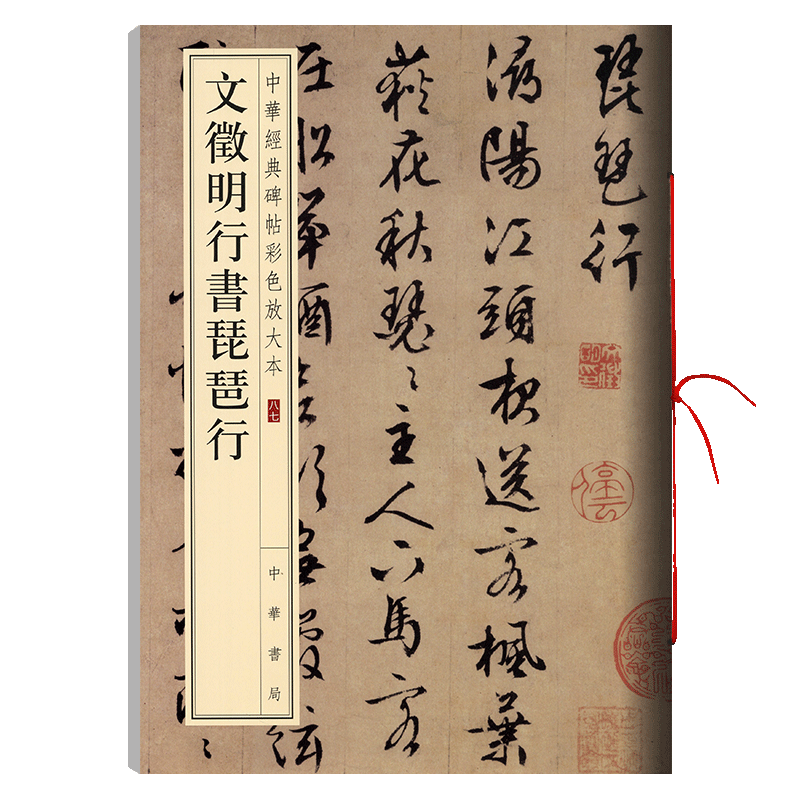 琵琶行
潯陽江頭夜送客楓葉
荻花秋瑟〻主人下馬客
在船舉酒欲飲無管絃
中華經典碑帖彩色放大本
八七
文徵明行書琵琶行
中華書局
停云